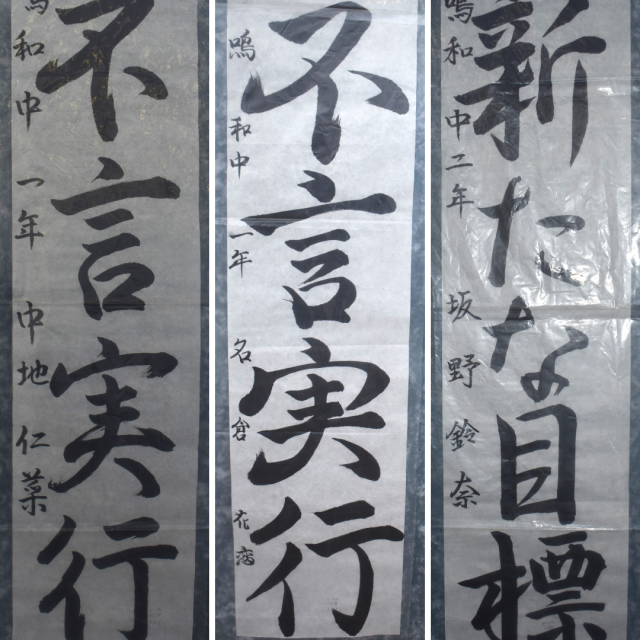 不言実行
鳴和中 一年 中地 仁菜
不言実行
鳴和中 一年 名倉 花恋
新たな目標
鳴和中二年 坂野鈴奈